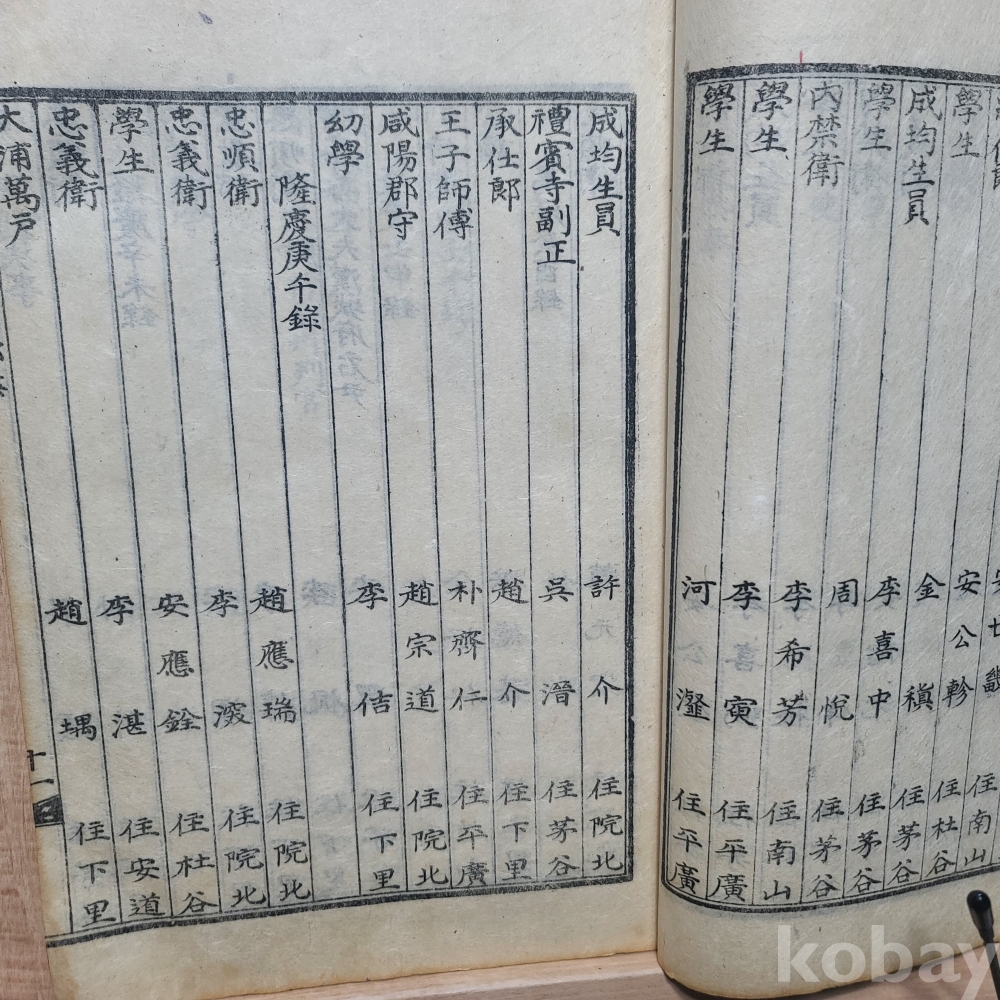 安公軫 住杜谷
學生 金稹 住茅谷
成均生員 李喜中 住茅谷
學生 周悅 住茅谷
內禁衛 李希芳 住南山
學生 李寅 住平廣
學生 河 住平廣
成均生員 許介 住院北
禮賓寺副正 吳溍 住茅谷
承仕郎 趙介 住下里
王子師傅 朴齊仁 住平廣
咸陽郡守 趙宗道 住院北
幼學 李佶 住下里
隆慶庚午錄
忠順衛 趙應瑞 住院北
忠義衛 李潑 住院北
學生 安應銓 住杜谷
忠義衛 李湛 住安道
大浦萬戶 趙堣 住下里
十一
kobay